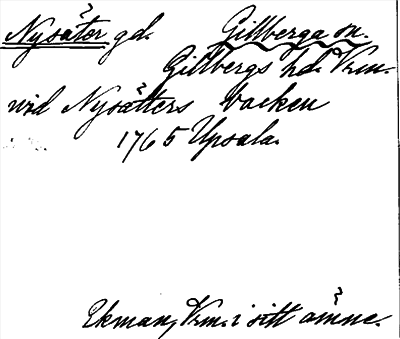 Nysäter gd. Gillberga sn.
Gillbergs hd. Vrm.
vid Nysätters backen
1765 Upsala.
Ekman, Vrm. i sitt ämne.